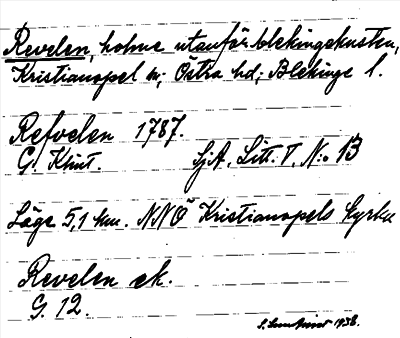 Revelen, holme utanför blekingekusten,
Kristianopel sn; Östra hd; Blekinge l.
Refvelen 1787.
G. Klint. SjA, Litt. V, N:o 13
Läge 5,1 km. NNÖ Kristianopels kyrka
Revelen ek.
G. 12.
1938.